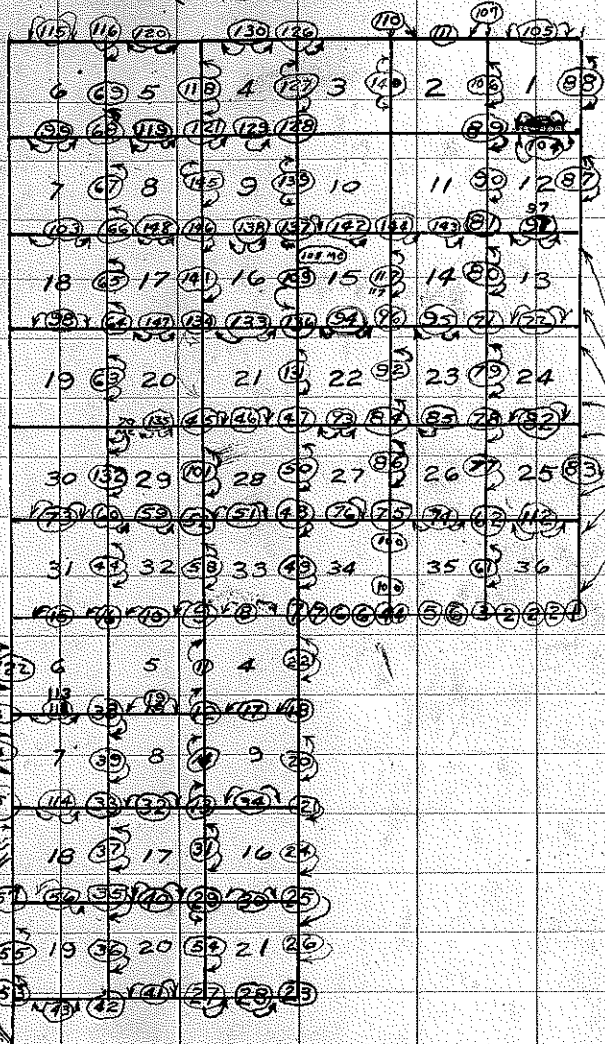 115 116 120 130 126 110 111 107 105
6 69 5 118 4 127 3 140 2 106 1 88
99 68 119 121 129 128 89 104
7 67 8 145 9 139 10 11 90 12 87
97
103 66 148 146 138 137 142 144 143 81
18 65 17 141 16 15 117 14 80 13
117
98 64 147 134 133 136 94 96 95 91 52
19 63 20 21 131 22 92 23 79 24
135 45 46 47 93 84 85 78 82
30 132 29 101 28 50 27 86 26 77 25 83
73 60 59 52 51 48 76 75 74 62 112
100
31 44 32 58 33 49 34 35 61 36
100
15 16 10 9 8 7 7 6 6 5 3 2 2 2 1
6 5 11 4 22
113 19
38 12 17 18
7 39 8 9 20
114 33 32 13 34 21
18 37 17 31 16 24
56 35 40 29 30 25
55 19 36 20 54 21 26
43 42 41 27 28 23